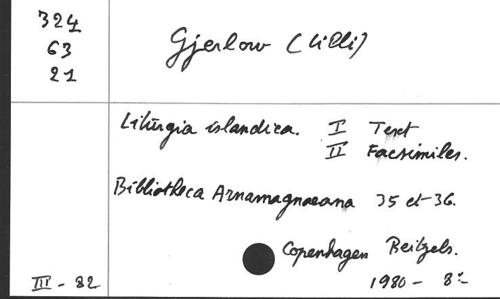 324
63
21
Gjerlow (Lilli)
Liturgia islandica. I Text
II Facsimiles.
Bibliotheca Arnamagnaeana 35 et 36.
Copenhagen Reitzels.
III - 82
1980 - 8º